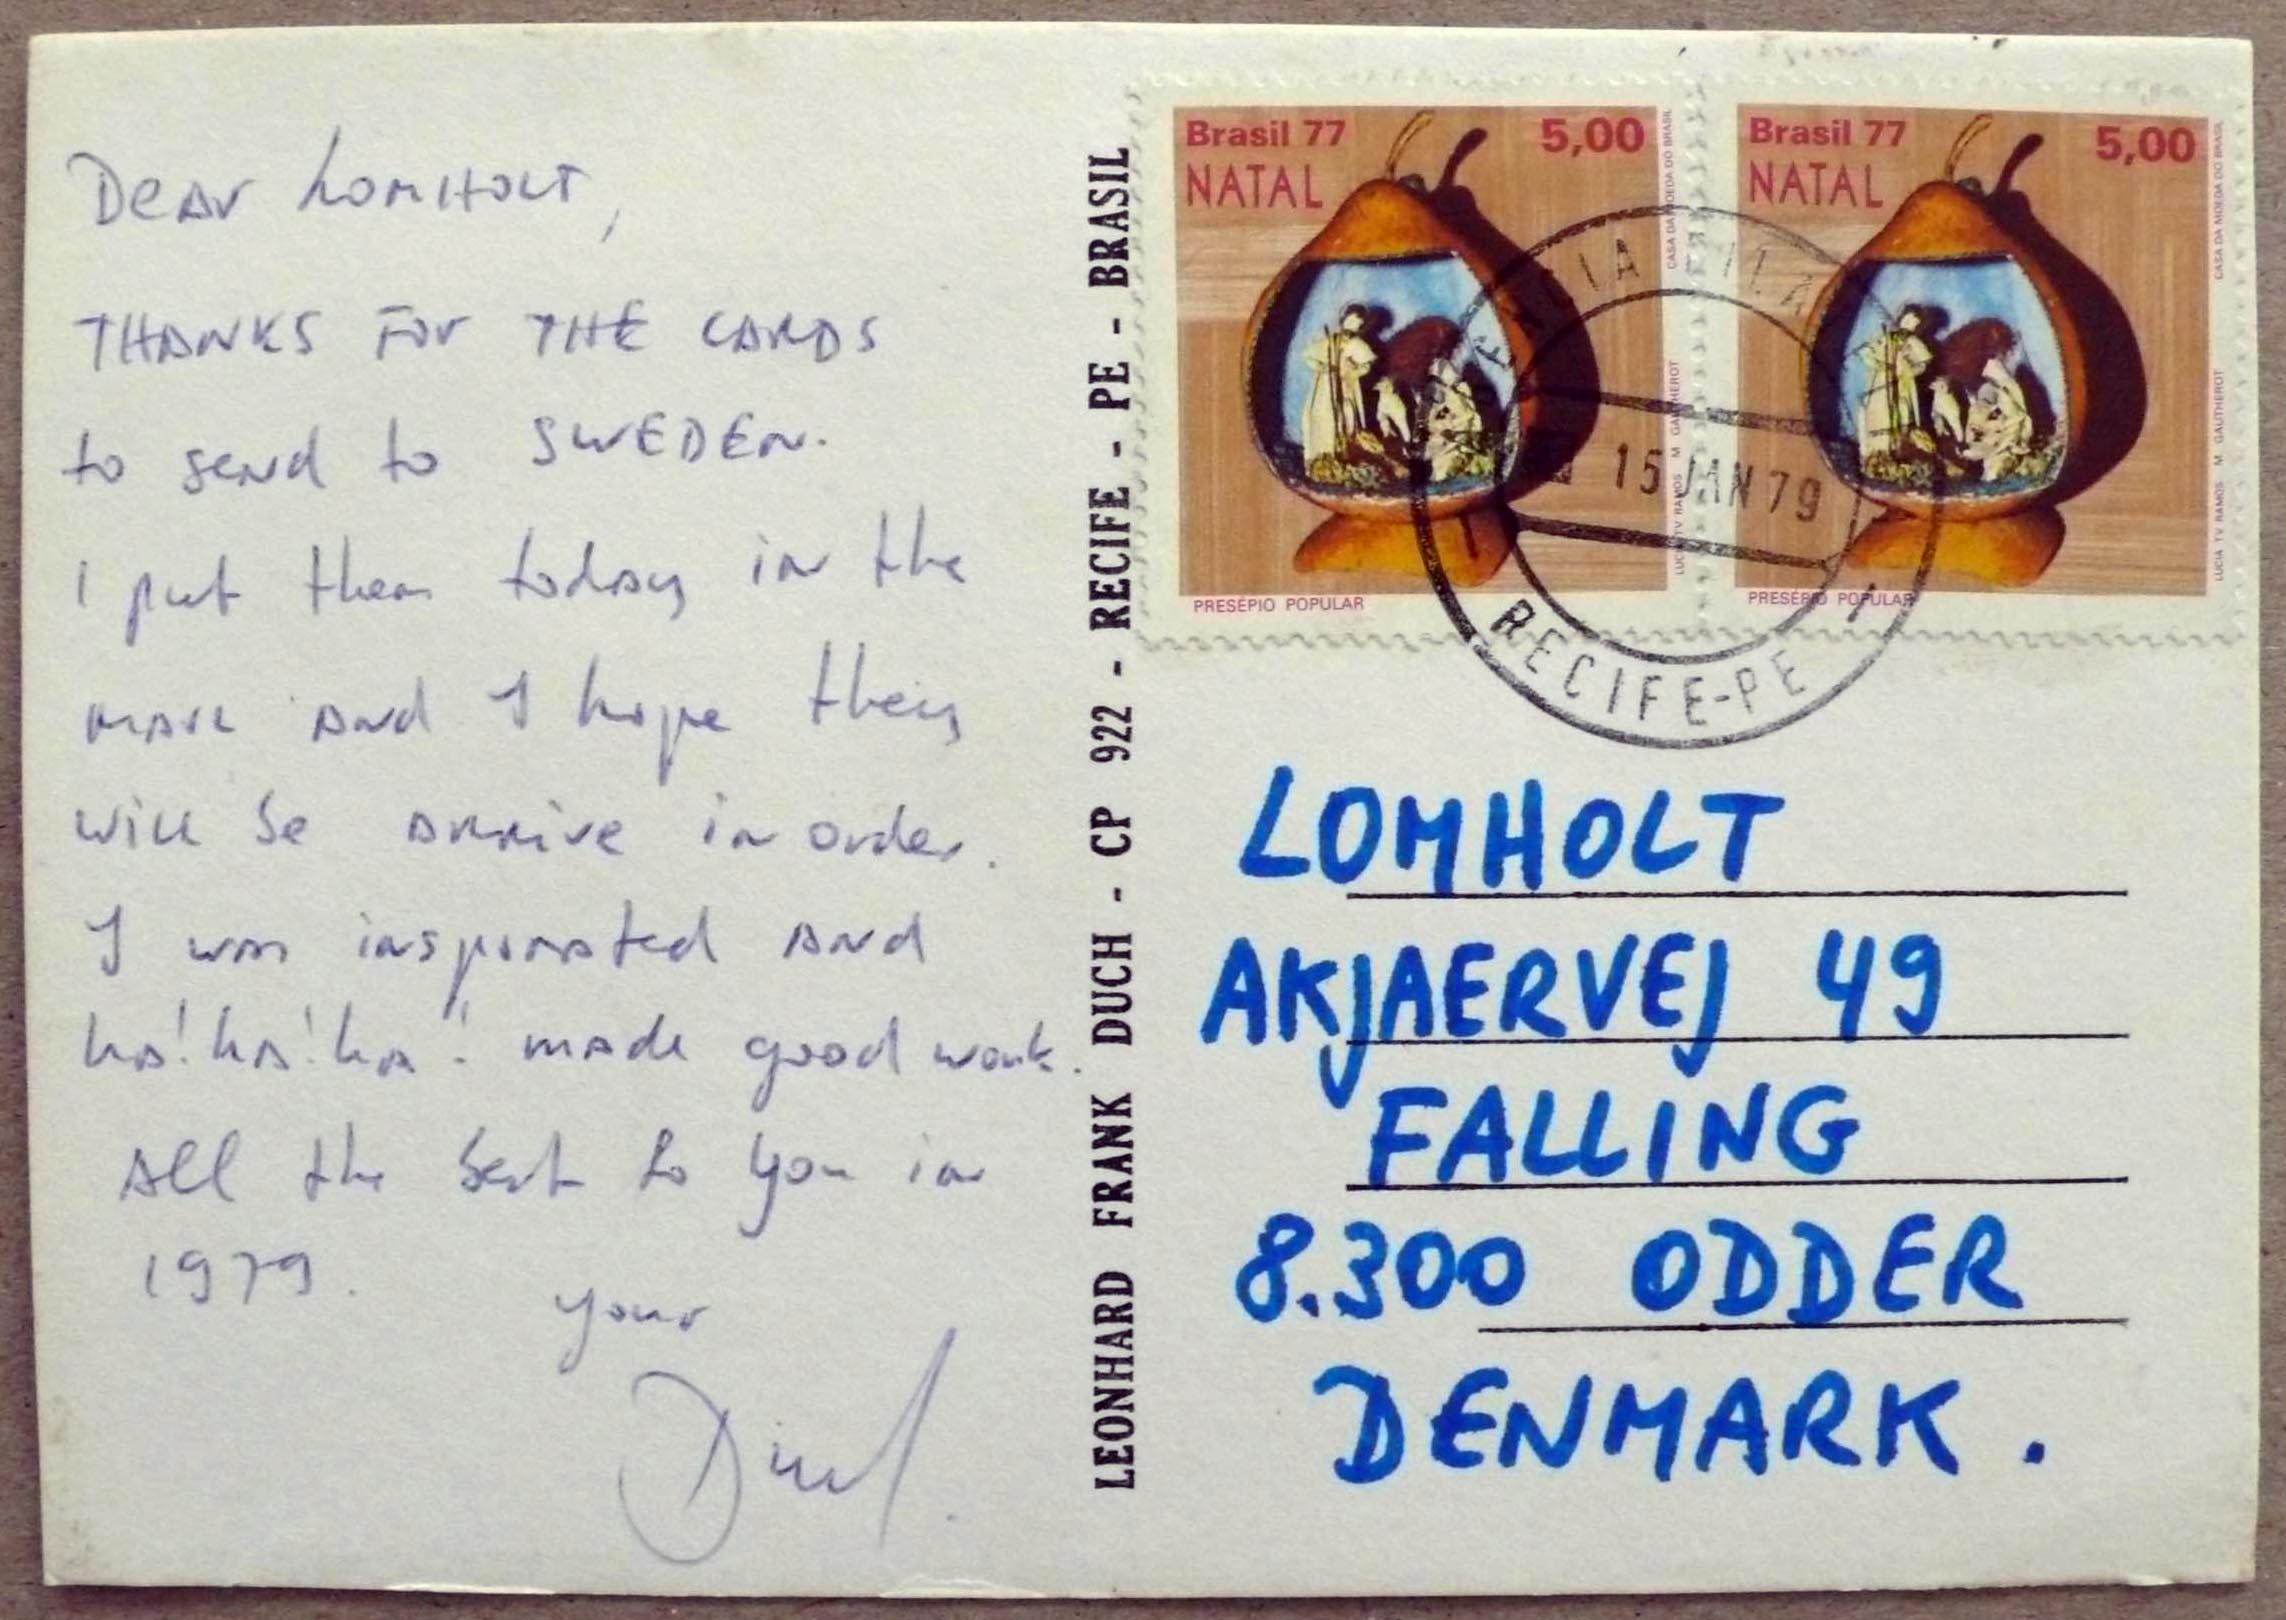 Dear LOMHOLT,
THANKS FOR THE CARDS
to send to SWEDEN.
I put them today in the
mail and I hope they
will be arrive in order.
I was inspirated and
ha! ha! ha! made good work.
All the best to you in
1979.
your
LEONHARD FRANK DUCH - CP 922 - RECIFE - PE - BRASIL
Brasil 77 5,00
NATAL
CASA DA MOEDA DO BRASIL
LUCIA TV RAMOS M GAUTHEROT
PRESÉPIO POPULAR
Brasil 77 5,00
NATAL
CASA DA MOEDA DO BRASIL
LUCIA TV RAMOS M GAUTHEROT
PRESÉPIO POPULAR
15 JAN 79
RECIFE-PE
LOMHOLT
AKJAERVEJ 49
FALLING
8.300 ODDER
DENMARK.